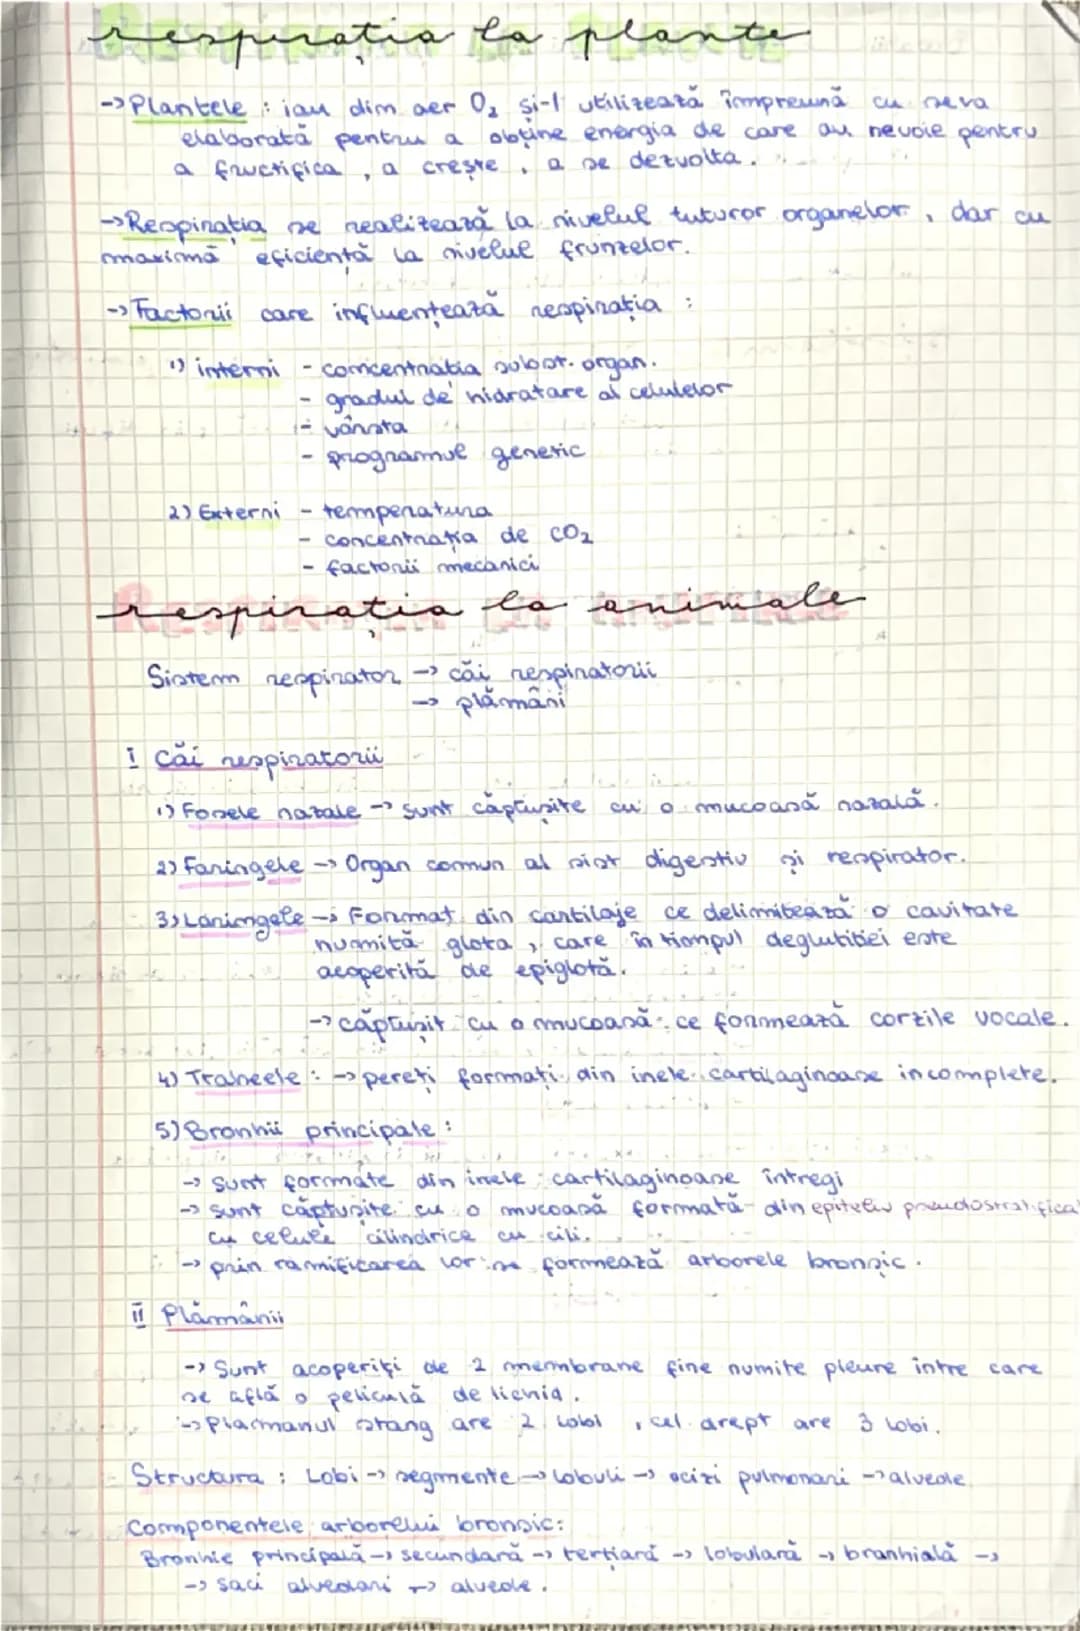 respirația la plante
-> Plantele : iau dim aer O₂ și-l utilizează împreună cu seva
elaborată pentru a obține energia de care au nevoie pentru
a fructifica , a crește , a se dezvolta .
-> Respirația se realizează la nivelul tuturor organelor , dar cu
maximă eficiență la nivelul frunzelor.
-> Factorii care influențează respirația :
1) interni - concentrația subst. organ.
- gradul de hidratare al celulelor
- vârsta
- programul genetic
2) Externi - temperatura
- concentrația de CO₂
- factorii mecanici
respirația la animale
Sistem respirator -> căi respiratorii
-> plămâni
I Căi respiratorii
1) Fosele nazale -> sunt căptușite cu o mucoasă nazală.
2) Faringele -> Organ comun al sist digestiv și respirator.
3) Laringele -> Format din cartilaje ce delimitează o cavitate
numită glota , care în timpul deglutiției este
acoperită de epiglotă.
-> căptușit cu o mucoasă ce formează corzile vocale.
4) Traheele : -> pereți formați din inele cartilaginoase incomplete.
5) Bronhii principale :
-> sunt formate din inele cartilaginoase întregi
-> sunt căptușite cu o mucoasă formată din epiteliu pseudostratificat
cu celule cilindrice cu cili.
-> prin ramificarea lor se formează arborele bronșic.
II Plămânii
-> Sunt acoperiți de 2 membrane fine numite pleure între care
se află o peliculă de lichid.
-> Plămânul stang are 2 lobi , cel drept are 3 lobi.
Structura : Lobi -> segmente -> lobuli -> acizi pulmonari -> alveole
Componentele arborelui bronșic:
Bronhie principală -> secundară -> terțiară -> lobulară -> branhială ->
-> saci alveolari -> alveole .